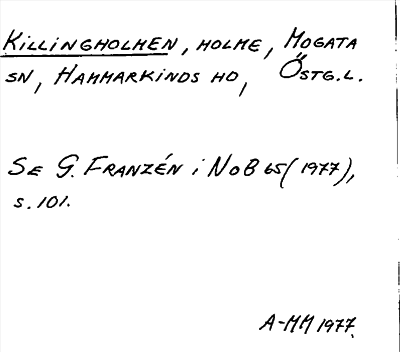 KILLINGHOLMEN, HOLME, MOGATA
SN, HAMMARKINDS HD, ÖSTG.L.
SE G. FRANZÉN i NoB 65 (1977),
s. 101.
A-MM 1977.